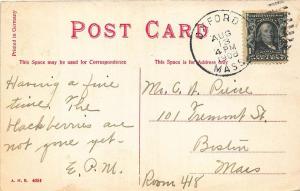 POST CARD
Printed in Germany
This Space may be used for Correspondence
This Space is for Address
OXFORD
AUG
4 PM
MASS
Having a fine
time. The
blackberries are
not gone yet.
E. P. M.
Mr. C. A. Pierce
101 Tremont St.
Boston
Mass
Room 418